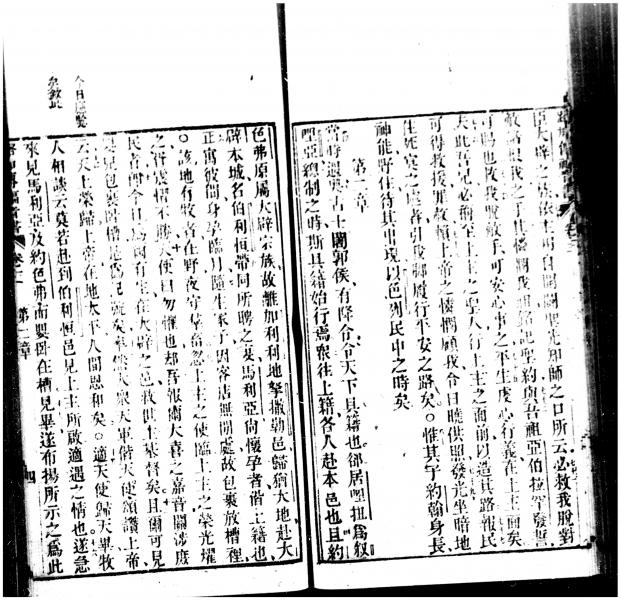 臣大辟之族依主明自開闢聖先知師之口所云必救我脫對
敵諸恨我之手且憐憫我祖銘記聖約與吾祖亞伯拉罕發誓
可賜也救我脫敵手可安心事之平生虔心行義在上主面矣
夫此吾兒必稱至上主之聖人行上主之面前以造其路報民
可得救援罪赦賴上帝之憐憫顧我令日曉供照發光坐暗地
住死寞之處者引我腳履行平安之路矣。惟其子約翰身長
神能野住待其出現以色列民中之時矣
第二章
當時遏奧古士闊郭侯、有降令令天下具籍也卻居哩扭爲叙
哩亞總制之時斯具籍始行焉衆往上籍各人赴本邑也且約
色弗原屬大辟宗族故離加利利地拏撒勒邑歸猶大地赴大
辟本城名伯利恒帶同所聘之妻馬利亞向懷孕者偕上籍也
正寓彼間身孕臨月隨生冢子因客店無閒處故包裹放槽裡
。該地有牧者在野夜守羊羣忽上主之使臨上主之榮光燿
之皆震慴不勝天使曰勿懼也却吾報爾大喜之嘉音關涉庶
民者即今日爲爾有生在大辟之邑救世主基督矣且爾可見
嬰兒包裹臥槽是爲記號矣率然大衆天軍偕天使頌讚上帝、
云天上榮歸上帝在地太平人間恩和矣。適天使歸天畢牧
人相談云莫若趕到伯利恒邑見上主所啟適遇之情也遂急
來見馬利亞及約色弗而嬰臥在槽見畢遂布揚所示之爲此
路加傳福音書 卷三 第二章 四